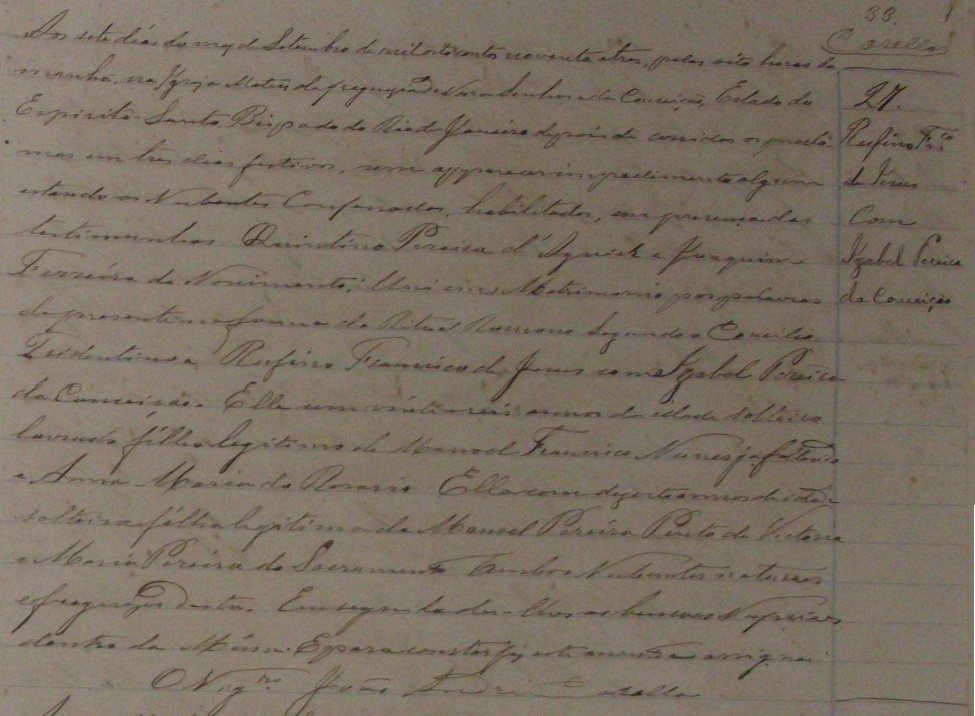 33.
Casella
Aos sete dias do mez de Setembro de mil oito centos noventa e tres, pelas oito horas da
manhã, na Igreja Matriz da freguezia de Nossa Senhora da Conceição, Estado do
Espirito-Santo Bispado do Rio de Janeiro depois de corridos os procla-
mas em tres dias festivos, sem apparecer impedimento algum
estando os Nubentes Confessados, habilitados, em presença das
testimunhas Quintino Pereira d'Aguiar e Joaquim
Ferreira do Nascimento; Uni em Matrimonio por palavras
de presente na forma do Ritual Romano Segundo o Concilio
Tridentino a Rufino Francisco de Jesus com Izabel Pereira
da Conceição. Elle com vinte e seis annos de idade solteiro
lavrado filho legitimo de Manoel Francisco Nunes já fallecido
e Anna Maria do Rosario Ella com dezoito annos de idade
solteira filha legitima de Manoel Pereira Pinto da Victoria
e Maria Pereira do Sacramento Ambos Nubentes naturaes
e freguezes desta. Em seguida dei-lhes as bençoes Nupciaes
dentro da Missa. E para constar fiz este assento e assignei.
O Vigro. João Casella
27.
Rufino Fr.co
de Jesus
Com
Izabel Pereira
da Conceição